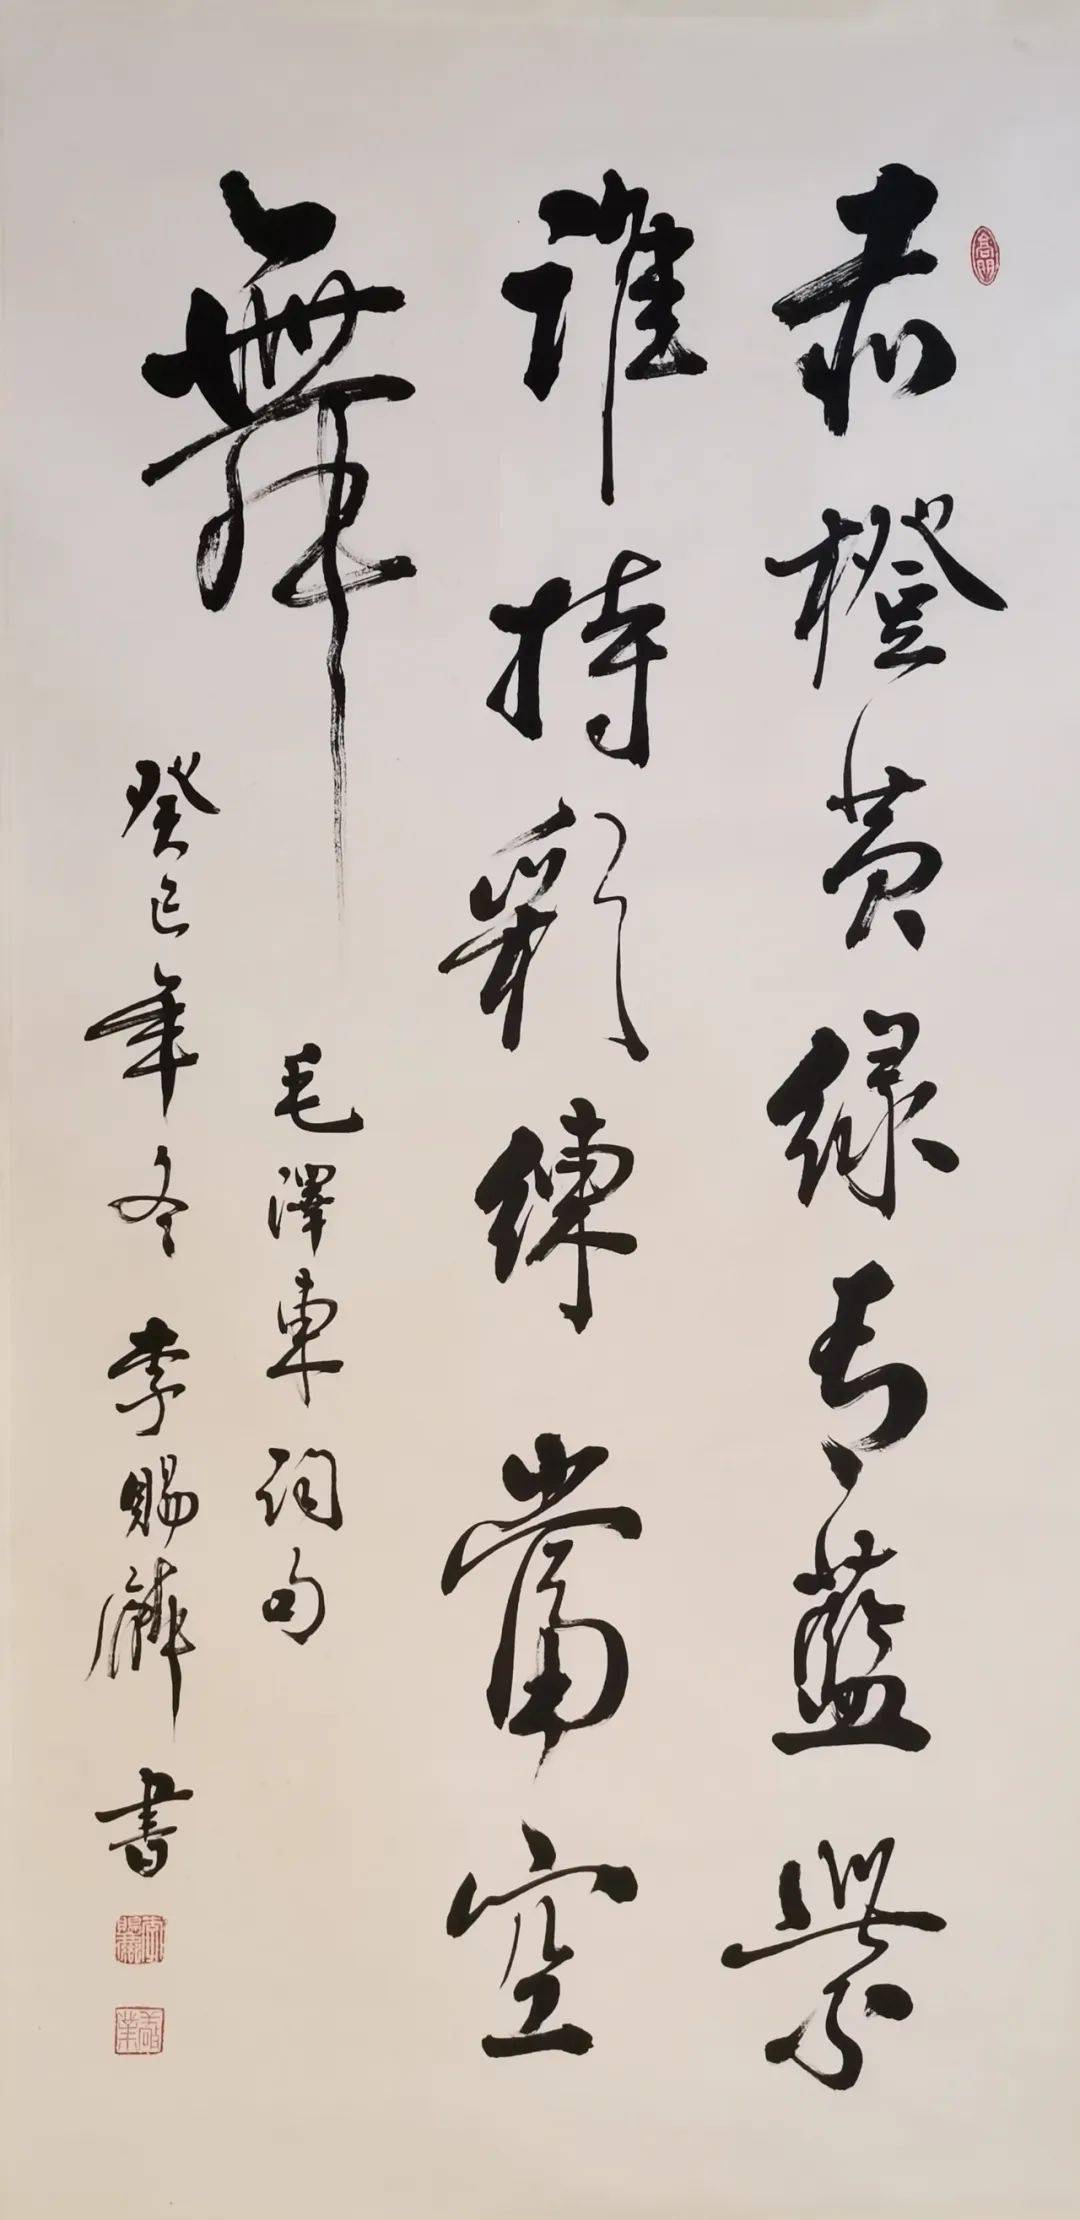 赤橙黄緑青藍紫
誰持彩練當空
舞
毛澤東詞句
癸巳年冬 李賜 書